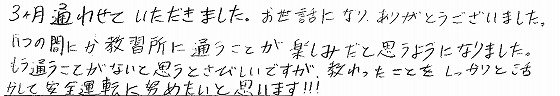 3ヶ月通わせていただきました。お世話になり、ありがとうございました。
いつの間にか教習所に通うことが楽しみだと思うようになりました。
もう通うことがないと思うとさびしいですが、教わったことをしっかりと活
かして安全運転に努めたいと思います!!!